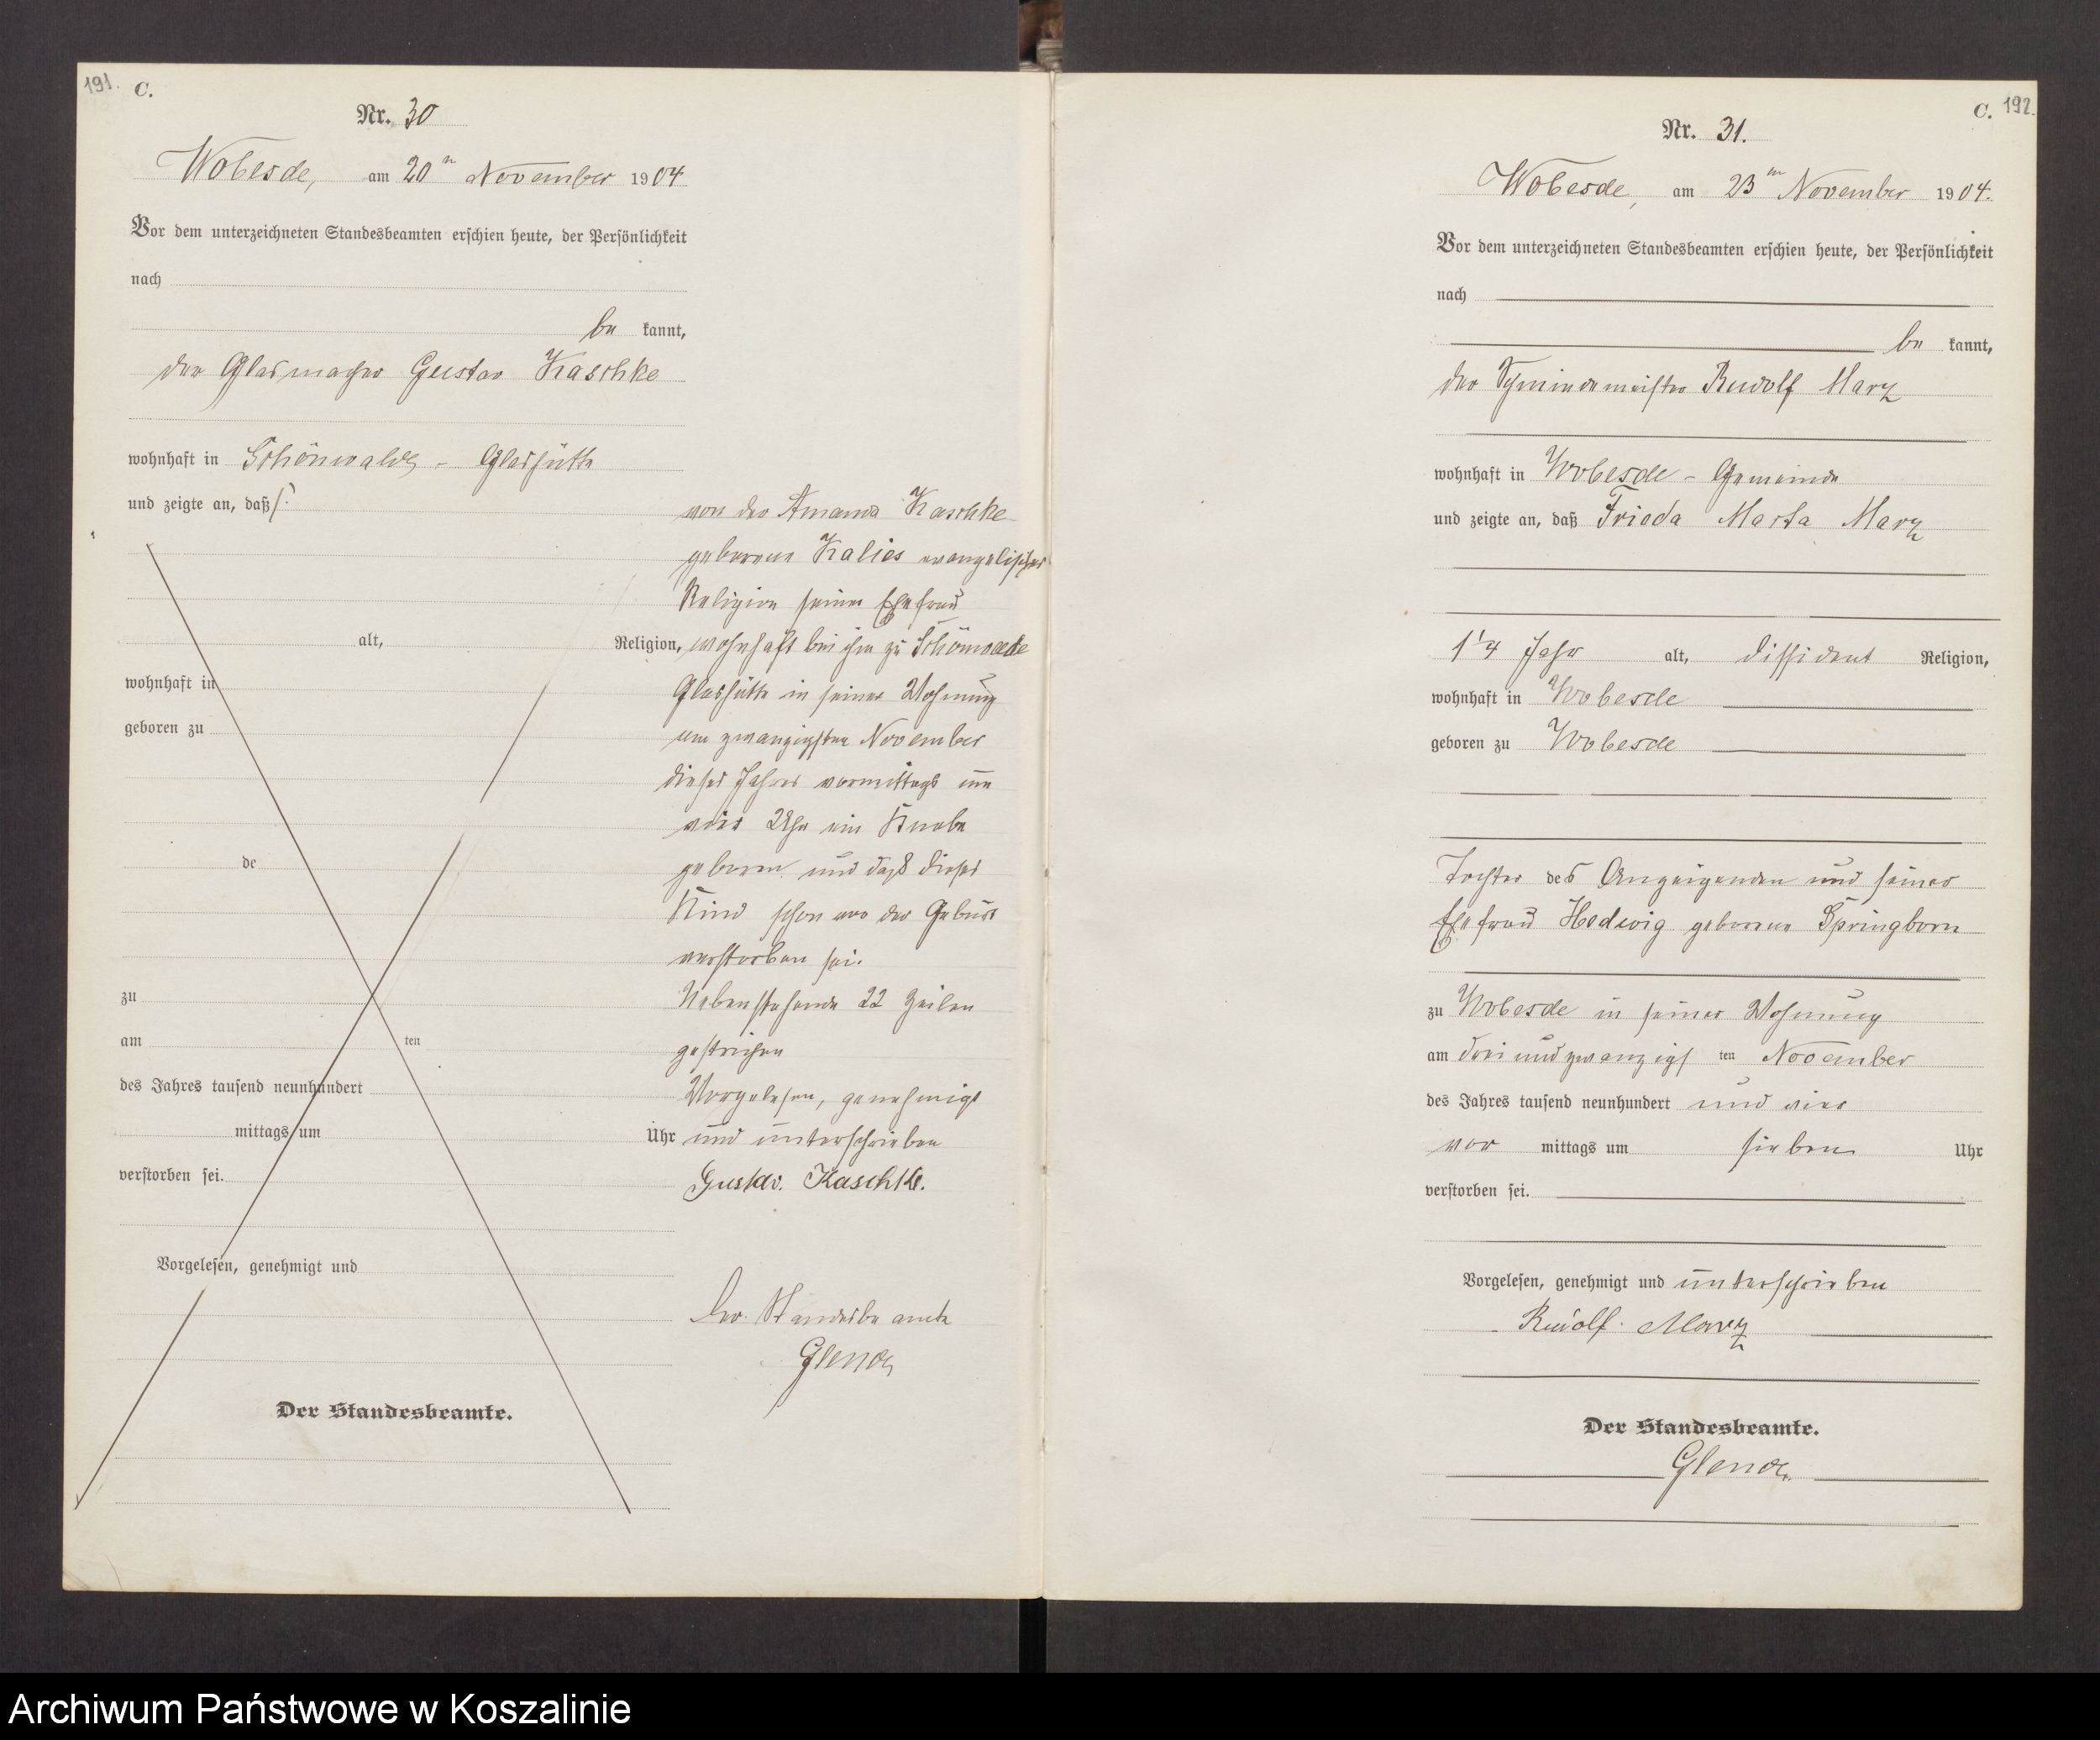 191. C.
Nr. 30
Wobesde, am 20n November 1904
Vor dem unterzeichneten Standesbeamten erschien heute, der Persönlichkeit
nach
be kannt,
der Glasmacher Gustav Kaschke
wohnhaft in Schönwalde - Glashütte
und zeigte an, daß
von der Amanda Kaschke
geborene Kalies evangelischer
Religion seiner Ehefrau
alt, Religion, wohnhaft bei ihm zu Schönwalde
wohnhaft in Glashütte in seiner Wohnung
geboren zu am zwanzigsten November
dieses Jahres vormittags um
vier Uhr ein Knabe
de geboren und daß dieses
Kind schon vor der Geburt
verstorben sei.
zu Nebenstehende 22 Zeilen
am ten gestrichen
des Jahres tausend neunhundert Vorgelesen, genehmigt
mittags um Uhr und unterschrieben
verstorben sei. Gustav. Kaschke.
Vorgelesen, genehmigt und
Der Standesbeamte
Der Standesbeamte.
C. 192.
Nr. 31.
Wobesde, am 23ten November 1904.
Vor dem unterzeichneten Standesbeamten erschien heute, der Persönlichkeit
nach
be kannt,
der Schmiedemeister Rudolf Marz
wohnhaft in Wobesde - Gemeinde
und zeigte an, daß Frieda Marta Marz
1 1/4 Jahr alt, dissident Religion,
wohnhaft in Wobesde
geboren zu Wobesde
Tochter des Anzeigenden und seiner
Ehefrau Hedwig geborene Springborn
zu Wobesde in seiner Wohnung
am dreiundzwanzigs ten November
des Jahres tausend neunhundert und vier
vor mittags um sieben Uhr
verstorben sei.
Vorgelesen, genehmigt und unterschrieben
Rudolf. Marz
Der Standesbeamte.
Archiwum Państwowe w Koszalinie